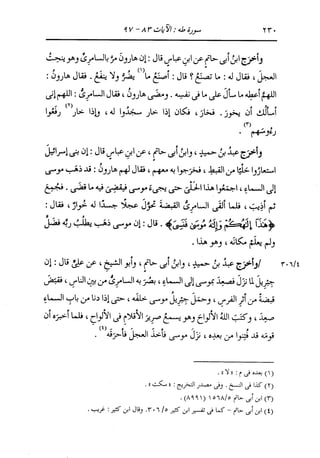 ٢٣٠ سورة طه : الآيات ٨٣ - ٩٧
وأخرَج ابنُ أبى حاتمٍ عن ابنِ عباسٍ قال : إن هارونَ مرَّ بالسامرىِّ وهو ينحِتُ
العجلَ ، فقال له : ما تصنعُ ؟ قال : أصنعُ ما(١) يضرُّ ولا ينفعُ . فقال هارونُ :
اللهمَّ أعطِه ما سأل على ما فى نفسِه . ومضَى هارونُ ، فقال السامرىُّ : اللهم إنى
أسألُك أن يخورَ . فخار ، فكان إذا خار سجَدوا له ، وإذا خار(٢) رفَعوا
رءوسَهم(٣) .
وأخرَج عبدُ بنُ حميدٍ ، وابنُ أبى حاتمٍ ، عن ابنِ عباسٍ قال : إن بنى إسرائيلَ
استعاروا حليًّا من القبطِ ، فخرَجوا به معهم ، فقال لهم هارونُ : قد ذهَب موسى
إلى السماءِ ، اجمَعوا هذا الحلىَّ حتى يجىءَ موسى فيقضىَ فيه ما قضَى . فجُمِع
ثم أُذيب ، فلما ألقَى السامرىُّ القبضةَ تحوَّل عجلًا جسدًا له خُوارٌ ، فقال :
﴿هَٰذَآ إِلَٰهُكُمْ وَإِلَٰهُ مُوسَىٰ فَنَسِىَ﴾ . قال : إن موسى ذهَب يطلُبُ ربَّه فضلَّ
ولم يعلَمْ مكانَه ، وهو هذا .
٣٠٦/٤ /وأخرَج عبدُ بنُ حميدٍ ، وابنُ أبى حاتمٍ ، وأبو الشيخِ ، عن علىٍّ قال : إن
جبريلَ لما نزَل فصعِد بموسى إلى السماءِ ، بصُر به السامرىُّ من بينِ الناسِ ، فقبَض
قبضةً من أثرِ الفرسِ ، وحمَل جبريلُ موسى خلفَه ، حتى إذا دنا من بابِ السماءِ
صعِد ، وكتَب اللهُ الألواحَ وهو يسمعُ صريرَ الأقلامِ فى الألواحِ ، فلما أخبَره أن
قومَه قد فُتِنوا من بعدِه ، نزَل موسى فأخَذ العجلَ فأحرَقه(٤) .
(١) بعده فى م : «لا» .
(٢) كذا فى النسخ . وفى مصدر التخريج : «سكت» .
(٣) ابن أبى حاتم ١٥٦٨/٥ (٨٩٩١) .
(٤) ابن أبى حاتم - كما فى تفسير ابن كثير ٣٠٦/٥ . وقال ابن كثير : غريب .